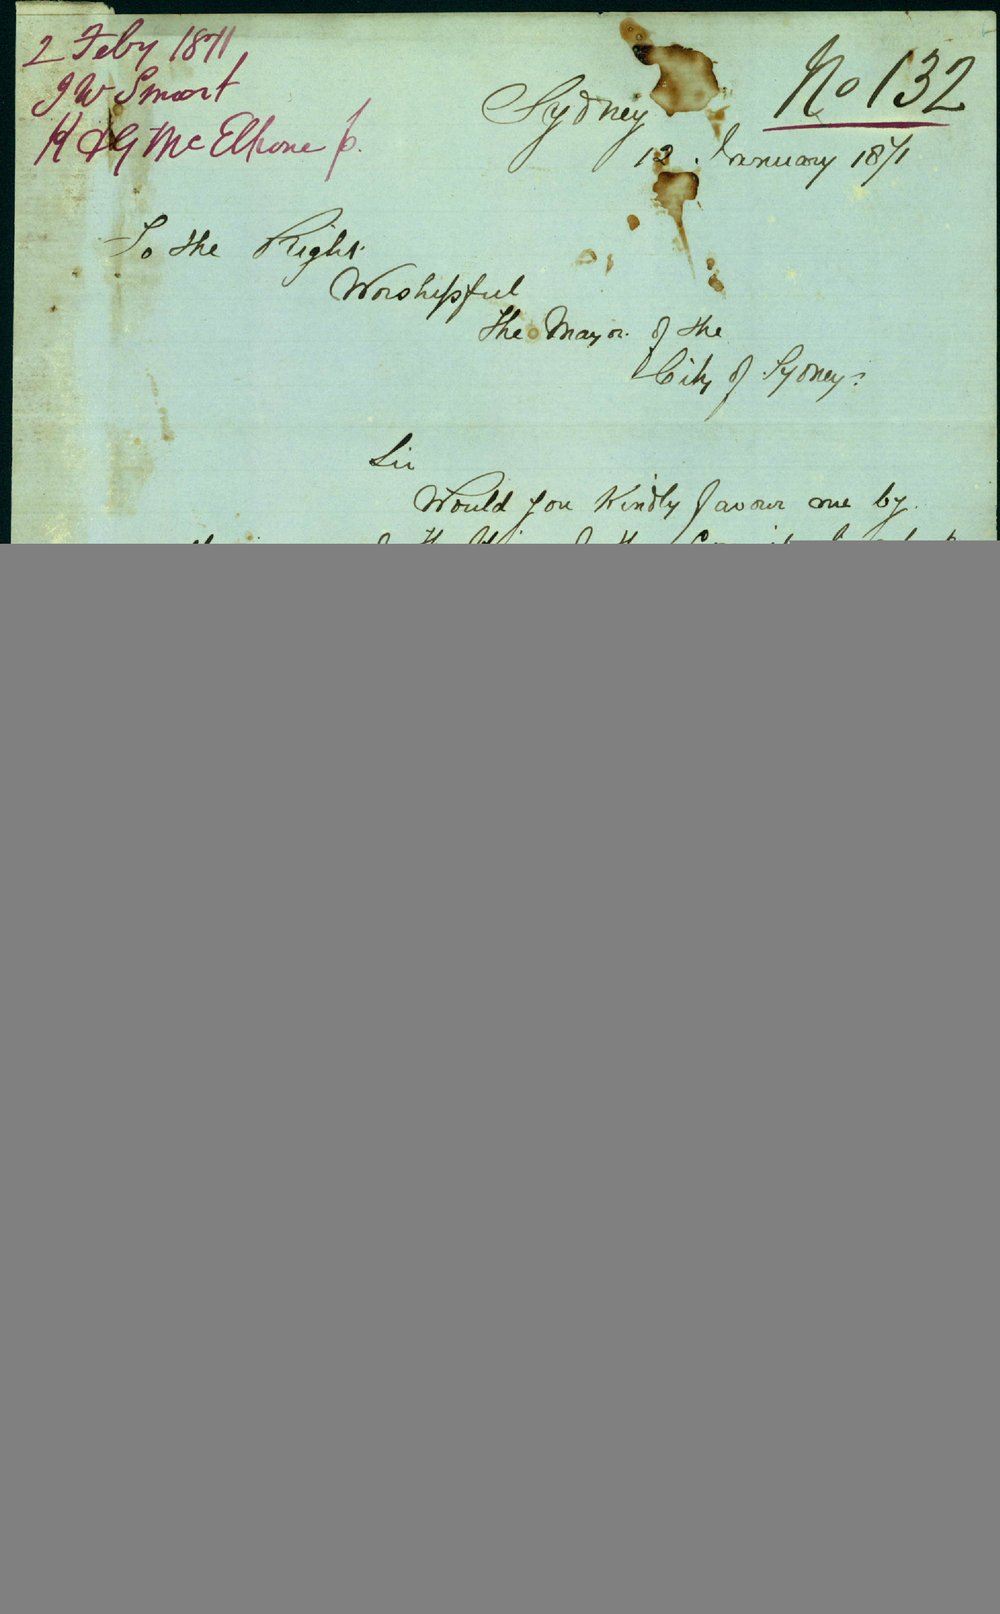 2 Feby 1871
J W Smart
H & G McElhone
No 132
Sydney
12 January 1871
To the Right
Worshipful
the Mayor of the
City of Sydney
Sir
Would you Kindly favour me by